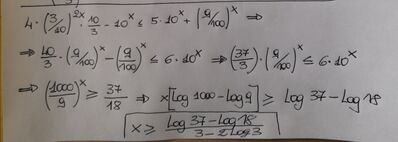 4·(3/10)^2x · 10/3 - 10^x ≤ 5·10^x + (9/100)^x ⇒
⇒ 40/3 · (9/100)^x - (9/100)^x ≤ 6·10^x ⇒ (37/3)·(9/100)^x ≤ 6·10^x
⇒ (1000/9)^x ≥ 37/18 ⇒ x[Log 1000 - Log 9] ≥ Log 37 - Log 18
x ≥ Log 37 - Log 18 / 3 - 2 Log 3